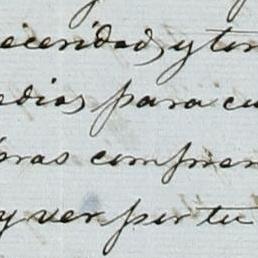 ecendad, y ten
edias, para cu
bras compren
y ver por tu